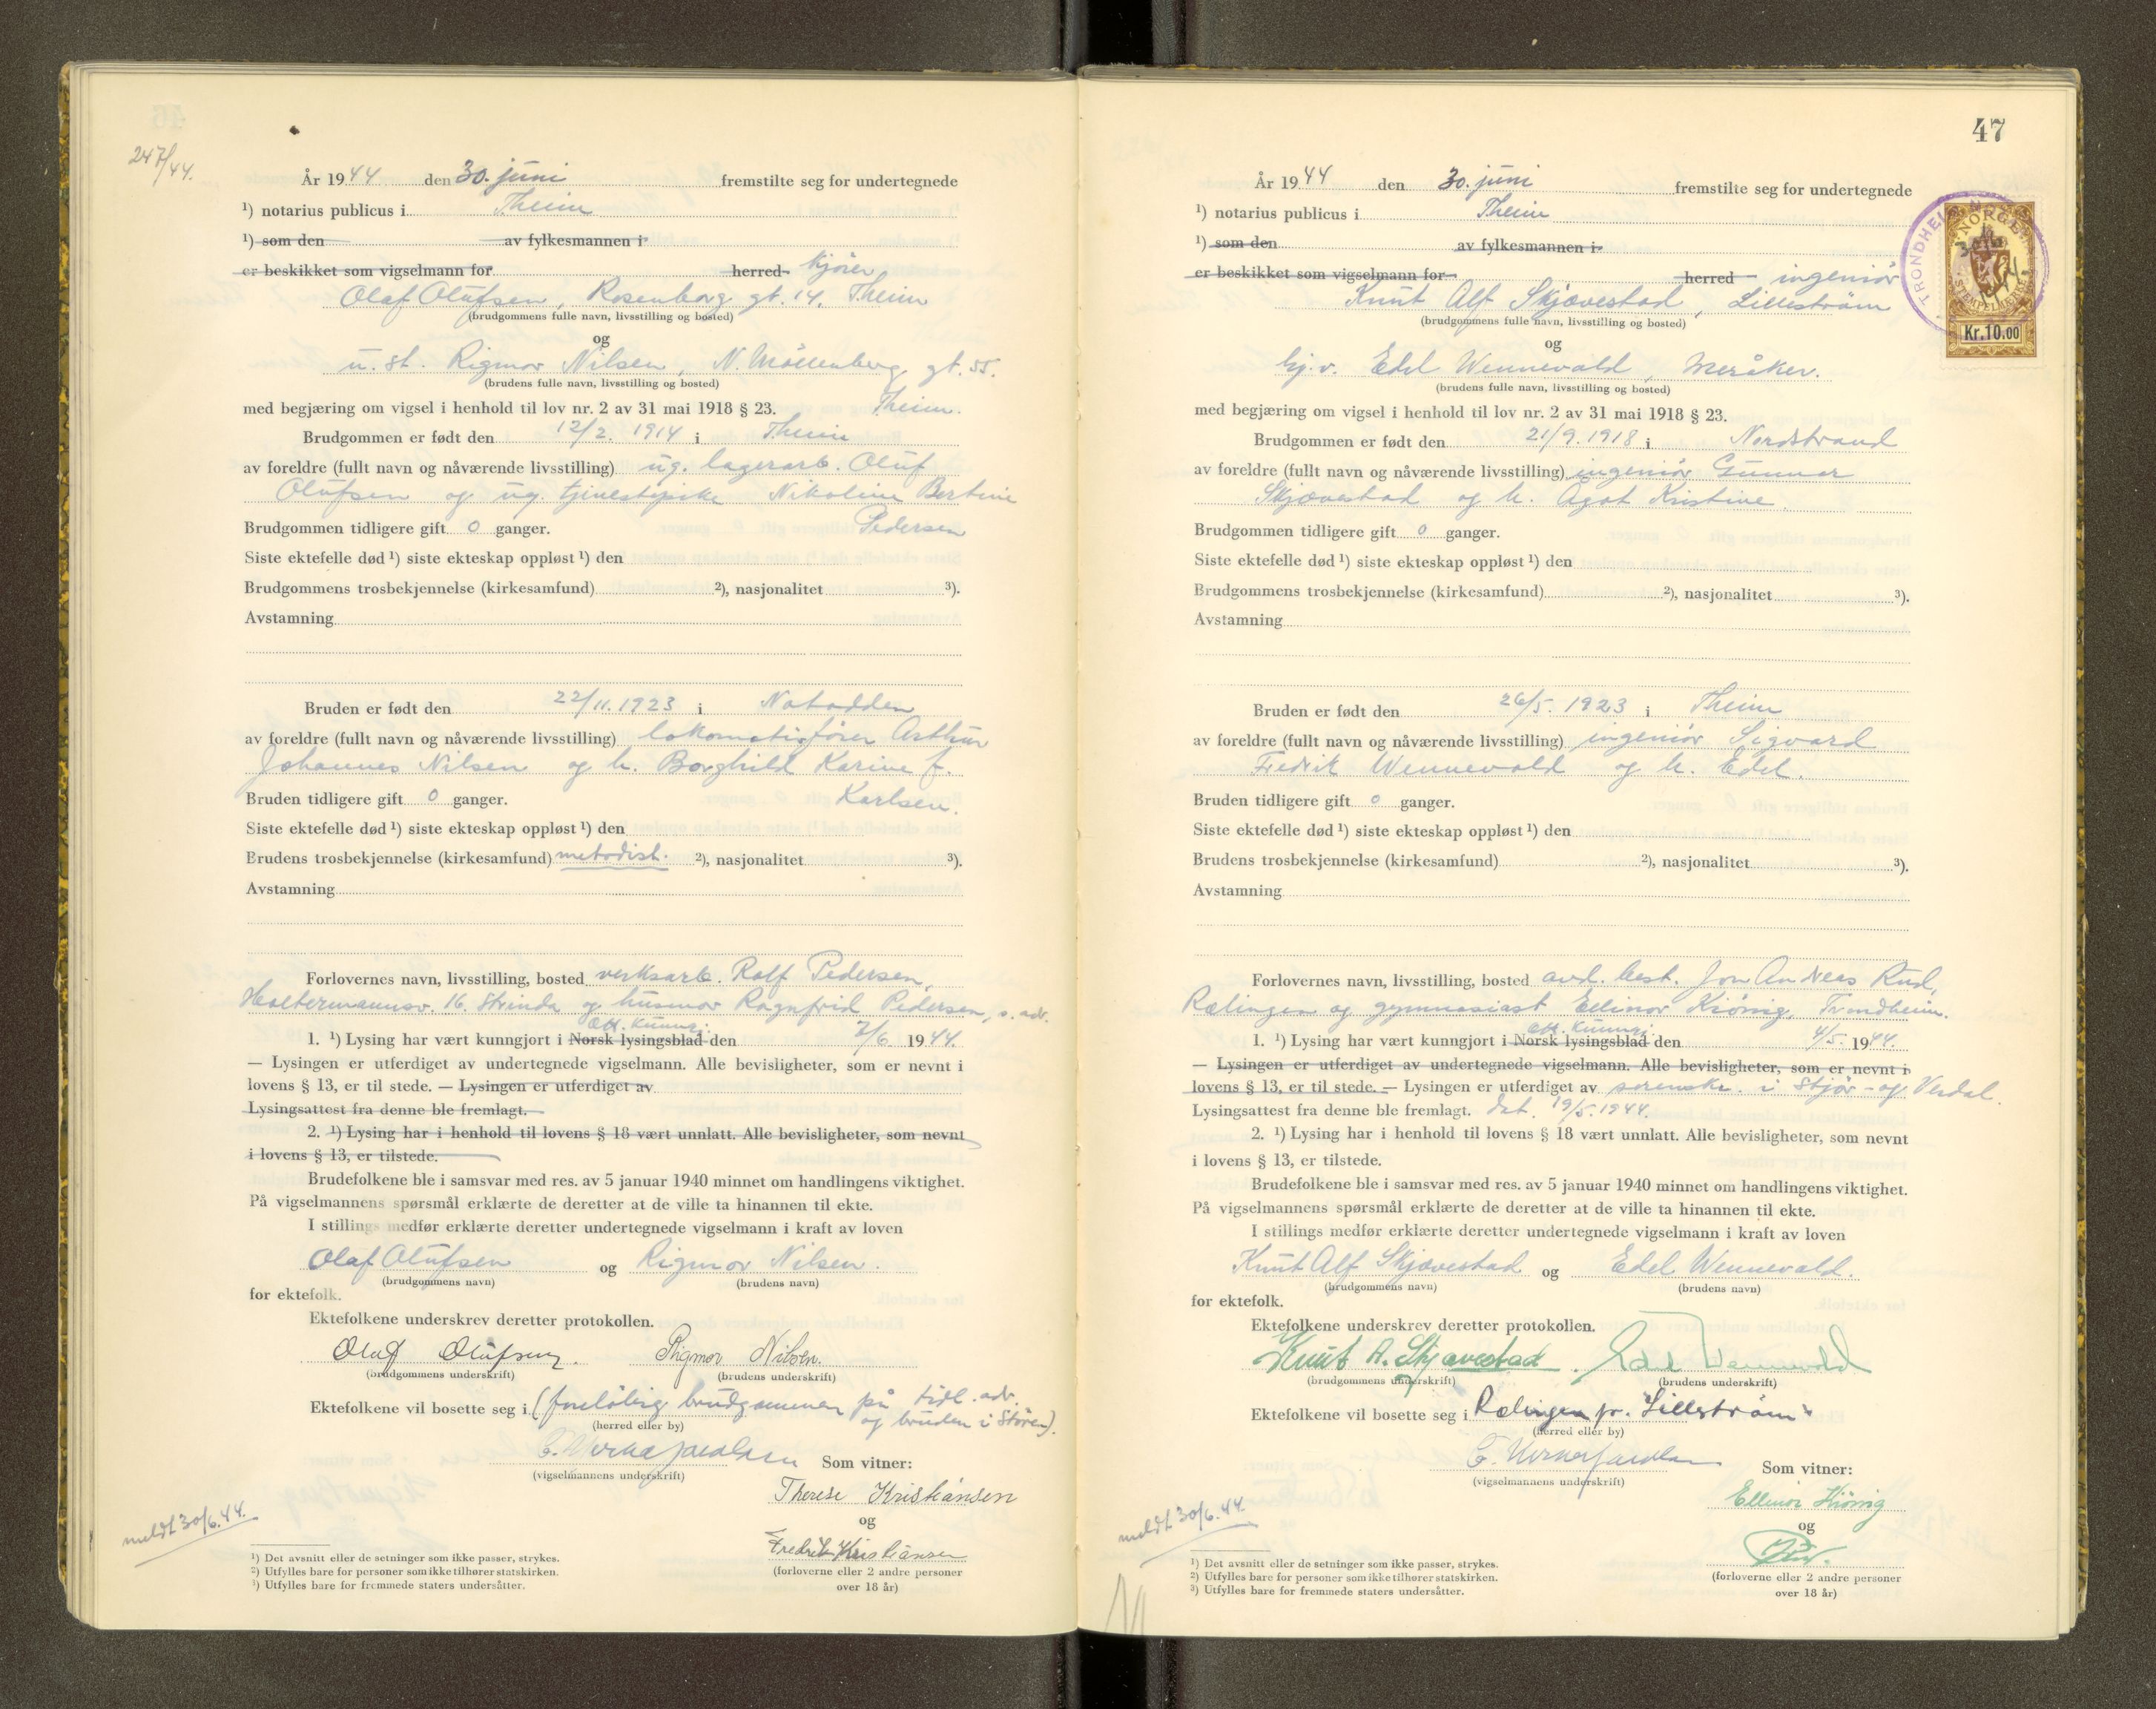 247/44.
År 1944 den 30. juni fremstilte seg for undertegnede
¹) notarius publicus i Theim
¹) som den av fylkesmannen i
er beskikket som vigselmann for herred kjører
Olaf Olufsen, Rosenborg gt. 14, Theim
(brudgommens fulle navn, livsstilling og bosted)
og
u. st. Rigmor Nilsen, N. Möllenberg gt. 55.
(brudens fulle navn, livsstilling og bosted)
med begjæring om vigsel i henhold til lov nr. 2 av 31 mai 1918 § 23. Theim.
Brudgommen er født den 12/2. 1914 i Theim
av foreldre (fullt navn og nåværende livsstilling) ug. lagerarb. Oluf
Olufsen og ug. tjenestepike Nikoline Bertine
Brudgommen tidligere gift 0 ganger. Pedersen
Siste ektefelle død ¹) siste ekteskap oppløst ¹) den
Brudgommens trosbekjennelse (kirkesamfund) ²), nasjonalitet ³).
Avstamning
Bruden er født den 22/11. 1923 i Notodden
av foreldre (fullt navn og nåværende livsstilling) lokomotivfører Arthur
Johannes Nilsen og h. Borghild Karine f.
Bruden tidligere gift 0 ganger. Karlsen.
Siste ektefelle død ¹) siste ekteskap oppløst ¹) den
Brudens trosbekjennelse (kirkesamfund) metodist. ²), nasjonalitet ³).
Avstamning
Forlovernes navn, livsstilling, bosted verksarb. Rolf Pedersen,
Holtermannsv. 16. Strinda og husmor Ragnfrid Pedersen, s. adr.
off. kunngj.
1. ¹) Lysing har vært kunngjort i Norsk lysingsblad den 7/6. 1944.
— Lysingen er utferdiget av undertegnede vigselmann. Alle bevisligheter, som er nevnt i
lovens § 13, er til stede. — Lysingen er utferdiget av
Lysingsattest fra denne ble fremlagt.
2. ¹) Lysing har i henhold til lovens § 18 vært unnlatt. Alle bevisligheter, som nevnt
i lovens § 13, er tilstede.
Brudefolkene ble i samsvar med res. av 5 januar 1940 minnet om handlingens viktighet.
På vigselmannens spørsmål erklærte de deretter at de ville ta hinannen til ekte.
I stillings medfør erklærte deretter undertegnede vigselmann i kraft av loven
Olaf Olufsen og Rigmor Nilsen.
(brudgommens navn) (brudens navn)
for ektefolk.
Ektefolkene underskrev deretter protokollen.
Olaf Olufsen. Rigmor Nilsen.
(brudgommens underskrift) (brudens underskrift)
Ektefolkene vil bosette seg i (foreløbig brudgommen på tidl. adr.
og bruden i Støren).
(herred eller by)
(vigselmannens underskrift) Som vitner:
Therese Kristiansen
og
Fredrik Kristiansen
(forloverne eller 2 andre personer
over 18 år)
meldt 30/6. 44.
¹) Det avsnitt eller de setninger som ikke passer, strykes.
²) Utfylles bare for personer som ikke tilhører statskirken.
³) Utfylles bare for fremmede staters undersåtter.
47
År 1944 den 30. juni fremstilte seg for undertegnede
¹) notarius publicus i Theim
¹) som den av fylkesmannen i
er beskikket som vigselmann for herred ingeniør
Knut Alf Skjævestad, Lillestrøm
(brudgommens fulle navn, livsstilling og bosted)
TRONDHEIM
NORGE
STEMPELMERKE
Kr. 10.00
og
hj.v. Edel Wennevald, Meråker.
(brudens fulle navn, livsstilling og bosted)
med begjæring om vigsel i henhold til lov nr. 2 av 31 mai 1918 § 23.
Brudgommen er født den 21/9. 1918 i Nordstrand
av foreldre (fullt navn og nåværende livsstilling) ingeniør Gunnar
Skjævestad og h. Ågot Kristine.
Brudgommen tidligere gift 0 ganger.
Siste ektefelle død ¹) siste ekteskap oppløst ¹) den
Brudgommens trosbekjennelse (kirkesamfund) ²), nasjonalitet ³).
Avstamning
Bruden er født den 26/5. 1923 i Theim
av foreldre (fullt navn og nåværende livsstilling) ingeniør Sigvard
Fredrik Wennevald og h. Edel.
Bruden tidligere gift 0 ganger.
Siste ektefelle død ¹) siste ekteskap oppløst ¹) den
Brudens trosbekjennelse (kirkesamfund) ²), nasjonalitet ³).
Avstamning
Forlovernes navn, livsstilling, bosted avd. best. Jon Andreas Rud,
Rælingen og gymnasiast Ellinor Kiönig, Trondheim.
off. kunngj.
1. ¹) Lysing har vært kunngjort i Norsk lysingsblad den 4/5. 1944.
— Lysingen er utferdiget av undertegnede vigselmann. Alle bevisligheter, som er nevnt i
lovens § 13, er til stede. — Lysingen er utferdiget av sorenskr. i Stjør- og Verdal.
Lysingsattest fra denne ble fremlagt. dat. 19/5. 1944.
2. ¹) Lysing har i henhold til lovens § 18 vært unnlatt. Alle bevisligheter, som nevnt
i lovens § 13, er tilstede.
Brudefolkene ble i samsvar med res. av 5 januar 1940 minnet om handlingens viktighet.
På vigselmannens spørsmål erklærte de deretter at de ville ta hinannen til ekte.
I stillings medfør erklærte deretter undertegnede vigselmann i kraft av loven
Knut Alf Skjævestad og Edel Wennevald.
(brudgommens navn) (brudens navn)
for ektefolk.
Ektefolkene underskrev deretter protokollen.
Knut A. Skjævestad. Edel Wennevold
(brudgommens underskrift) (brudens underskrift)
Ektefolkene vil bosette seg i Rælingen pr. Lillestrøm
(herred eller by)
(vigselmannens underskrift) Som vitner:
Ellinor Kiönig
og
(forloverne eller 2 andre personer
over 18 år)
meldt 30/6. 44.
¹) Det avsnitt eller de setninger som ikke passer, strykes.
²) Utfylles bare for personer som ikke tilhører statskirken.
³) Utfylles bare for fremmede staters undersåtter.